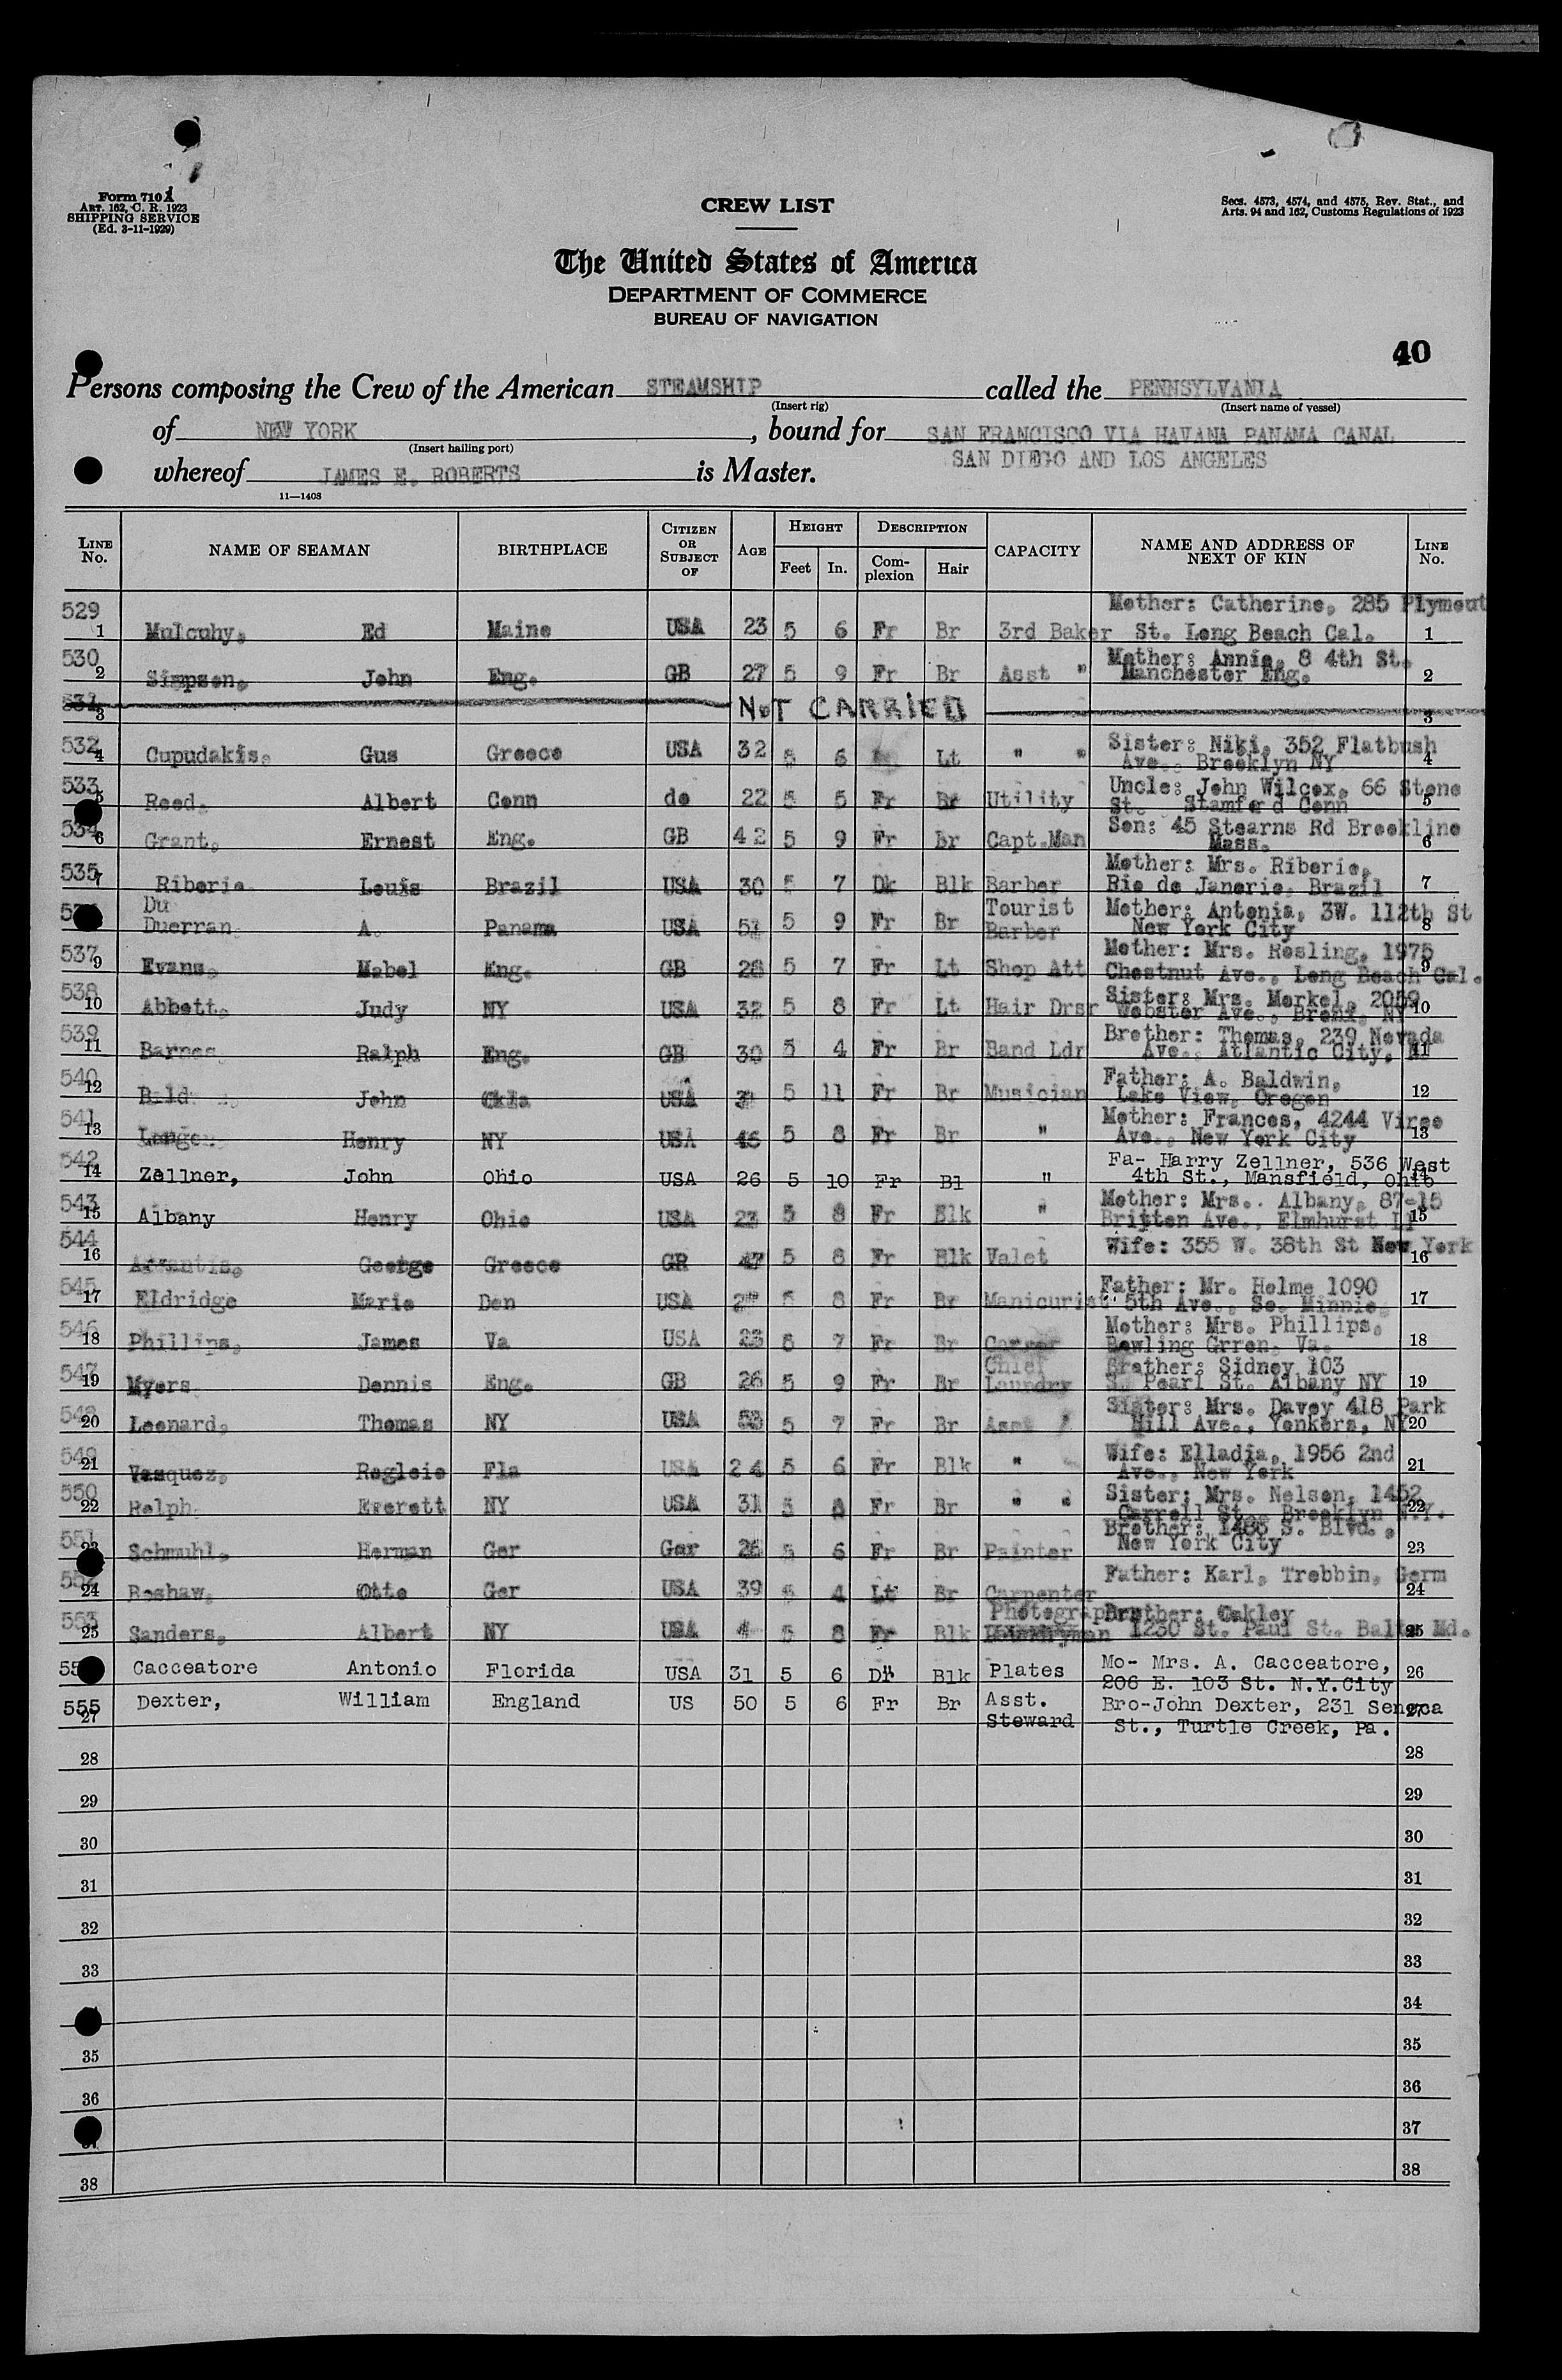 Form 710A
ART. 162, C. R. 1923
SHIPPING SERVICE
(Ed. 3-11-1929)
CREW LIST
Secs. 4573, 4574, and 4575, Rev. Stat., and
Arts. 94 and 162, Customs Regulations of 1923
The United States of America
DEPARTMENT OF COMMERCE
BUREAU OF NAVIGATION
40
Persons composing the Crew of the American STEAMSHIP called the PENNSYLVANIA
(Insert rig) (Insert name of vessel)
of NEW YORK, bound for SAN FRANCISCO VIA HAVANA PANAMA CANAL
(Insert hailing port) SAN DIEGO AND LOS ANGELES
whereof JAMES E. ROBERTS is Master.
11—1408
LINE No. NAME OF SEAMAN BIRTHPLACE CITIZEN OR SUBJECT OF AGE HEIGHT Feet In. DESCRIPTION Complexion Hair CAPACITY NAME AND ADDRESS OF NEXT OF KIN LINE No.
529 Mother: Catherine, 285 Plymout
1 Mulcuhy, Ed Maine USA 23 5 6 Fr Br 3rd Baker St. Long Beach Cal. 1
530 Mother: Annie, 8 4th St.
2 Simpson, John Eng. GB 27 5 9 Fr Br Asst " Manchester Eng. 2
531 3 NOT CARRIED 3
532 Sister: Niki, 352 Flatbush
4 Cupudakis, Gus Greece USA 32 5 6 Lt " " Ave., Brooklyn NY 4
533 Uncle: John Wilcox, 66 Stone
5 Reed, Albert Conn do 22 5 5 Fr Br Utility St. Stamford Conn 5
534 Son: 45 Stearns Rd Brookline
6 Grant, Ernest Eng. GB 42 5 9 Fr Br Capt.Man Mass. 6
535 Mother: Mrs. Riberio,
7 Riberio Louis Brazil USA 30 5 7 Dk Blk Barber Rio de Janerio, Brazil 7
Du Tourist Mother: Antonia, 3W. 112th St
Duerran A. Panama USA 51 5 9 Fr Br Barber New York City 8
537 Mother: Mrs. Rosling, 1975
9 Evans, Mabel Eng. GB 28 5 7 Fr Lt Shop Att Chestnut Ave., Long Beach Cal. 9
538 Sister: Mrs. Merkel, 2059
10 Abbott, Judy NY USA 32 5 8 Fr Lt Hair Drsr Webster Ave., Bronx, NY 10
539 Brother: Thomas, 239 Nevada
11 Barnes Ralph Eng. GB 30 5 4 Fr Br Band Ldr Ave., Atlantic City, 11
540 Father: A. Baldwin,
12 John Okla USA 5 11 Fr Br Musician Lake View, Oregon 12
541 Mother: Frances, 4244
13 Henry NY USA 46 5 8 Fr Br " Ave., New York City 13
542 Fa- Harry Zellner, 536 West
14 Zellner, John Ohio USA 26 5 10 Fr Bl " 4th St., Mansfield, Ohio 14
543 Mother: Mrs. Albany, 87-15
15 Albany Henry Ohio USA 23 5 8 Fr Blk " Britten Ave., Elmhurst LI 15
544 Wife: 355 W. 38th St New York
16 George Greece GR 47 5 8 Fr Blk Valet 16
545 Father: Mr. Helme 1090
17 Eldridge Marie Den USA 5 8 Fr Br Manicurist 5th Ave., So. Minnie 17
546 Mother: Mrs. Phillips,
18 Phillips, James Va USA 23 5 7 Fr Br Bowling Grren, Va. 18
547 Chief Brother: Sidney 103
19 Myers Dennis Eng. GB 26 5 9 Fr Br Laundry S. Pearl St. Albany NY 19
548 Sister: Mrs. Davey 418 Park
20 Leonard, Thomas NY USA 53 5 7 Fr Br Hill Ave., Yonkers, NY 20
549 Wife: Elladia, 1956 2nd
21 Vasquez, Rogleio Fla USA 24 5 6 Fr Blk " Ave., New York 21
550 Sister: Mrs. Nelson, 1452
22 Ralph Everett NY USA 31 5 8 Fr Br " " Carroll St., Brooklyn N.Y. 22
551 Brother: 1485 S. Blvd.,
23 Schmuhl, Herman Ger Ger 26 5 6 Fr Br Painter New York City 23
552 Father: Karl, Trebbin, Germ
24 Boshaw, Otto Ger USA 39 5 4 Lt Br Carpenter 24
553 Photographer Brother: Oakley
25 Sanders, Albert NY USA 5 8 Fr Blk 1230 St. Paul St. Balto Md. 25
Cacceatore Antonio Florida USA 31 5 6 Dk Blk Plates Mo- Mrs. A. Cacceatore, 26
206 E. 103 St. N.Y.City
555 Dexter, William England US 50 5 6 Fr Br Asst. Bro-John Dexter, 231 Seneca
27 Steward St., Turtle Creek, Pa. 27
28 28
29 29
30 30
31 31
32 32
33 33
34
35 35
36 36
37
38 38